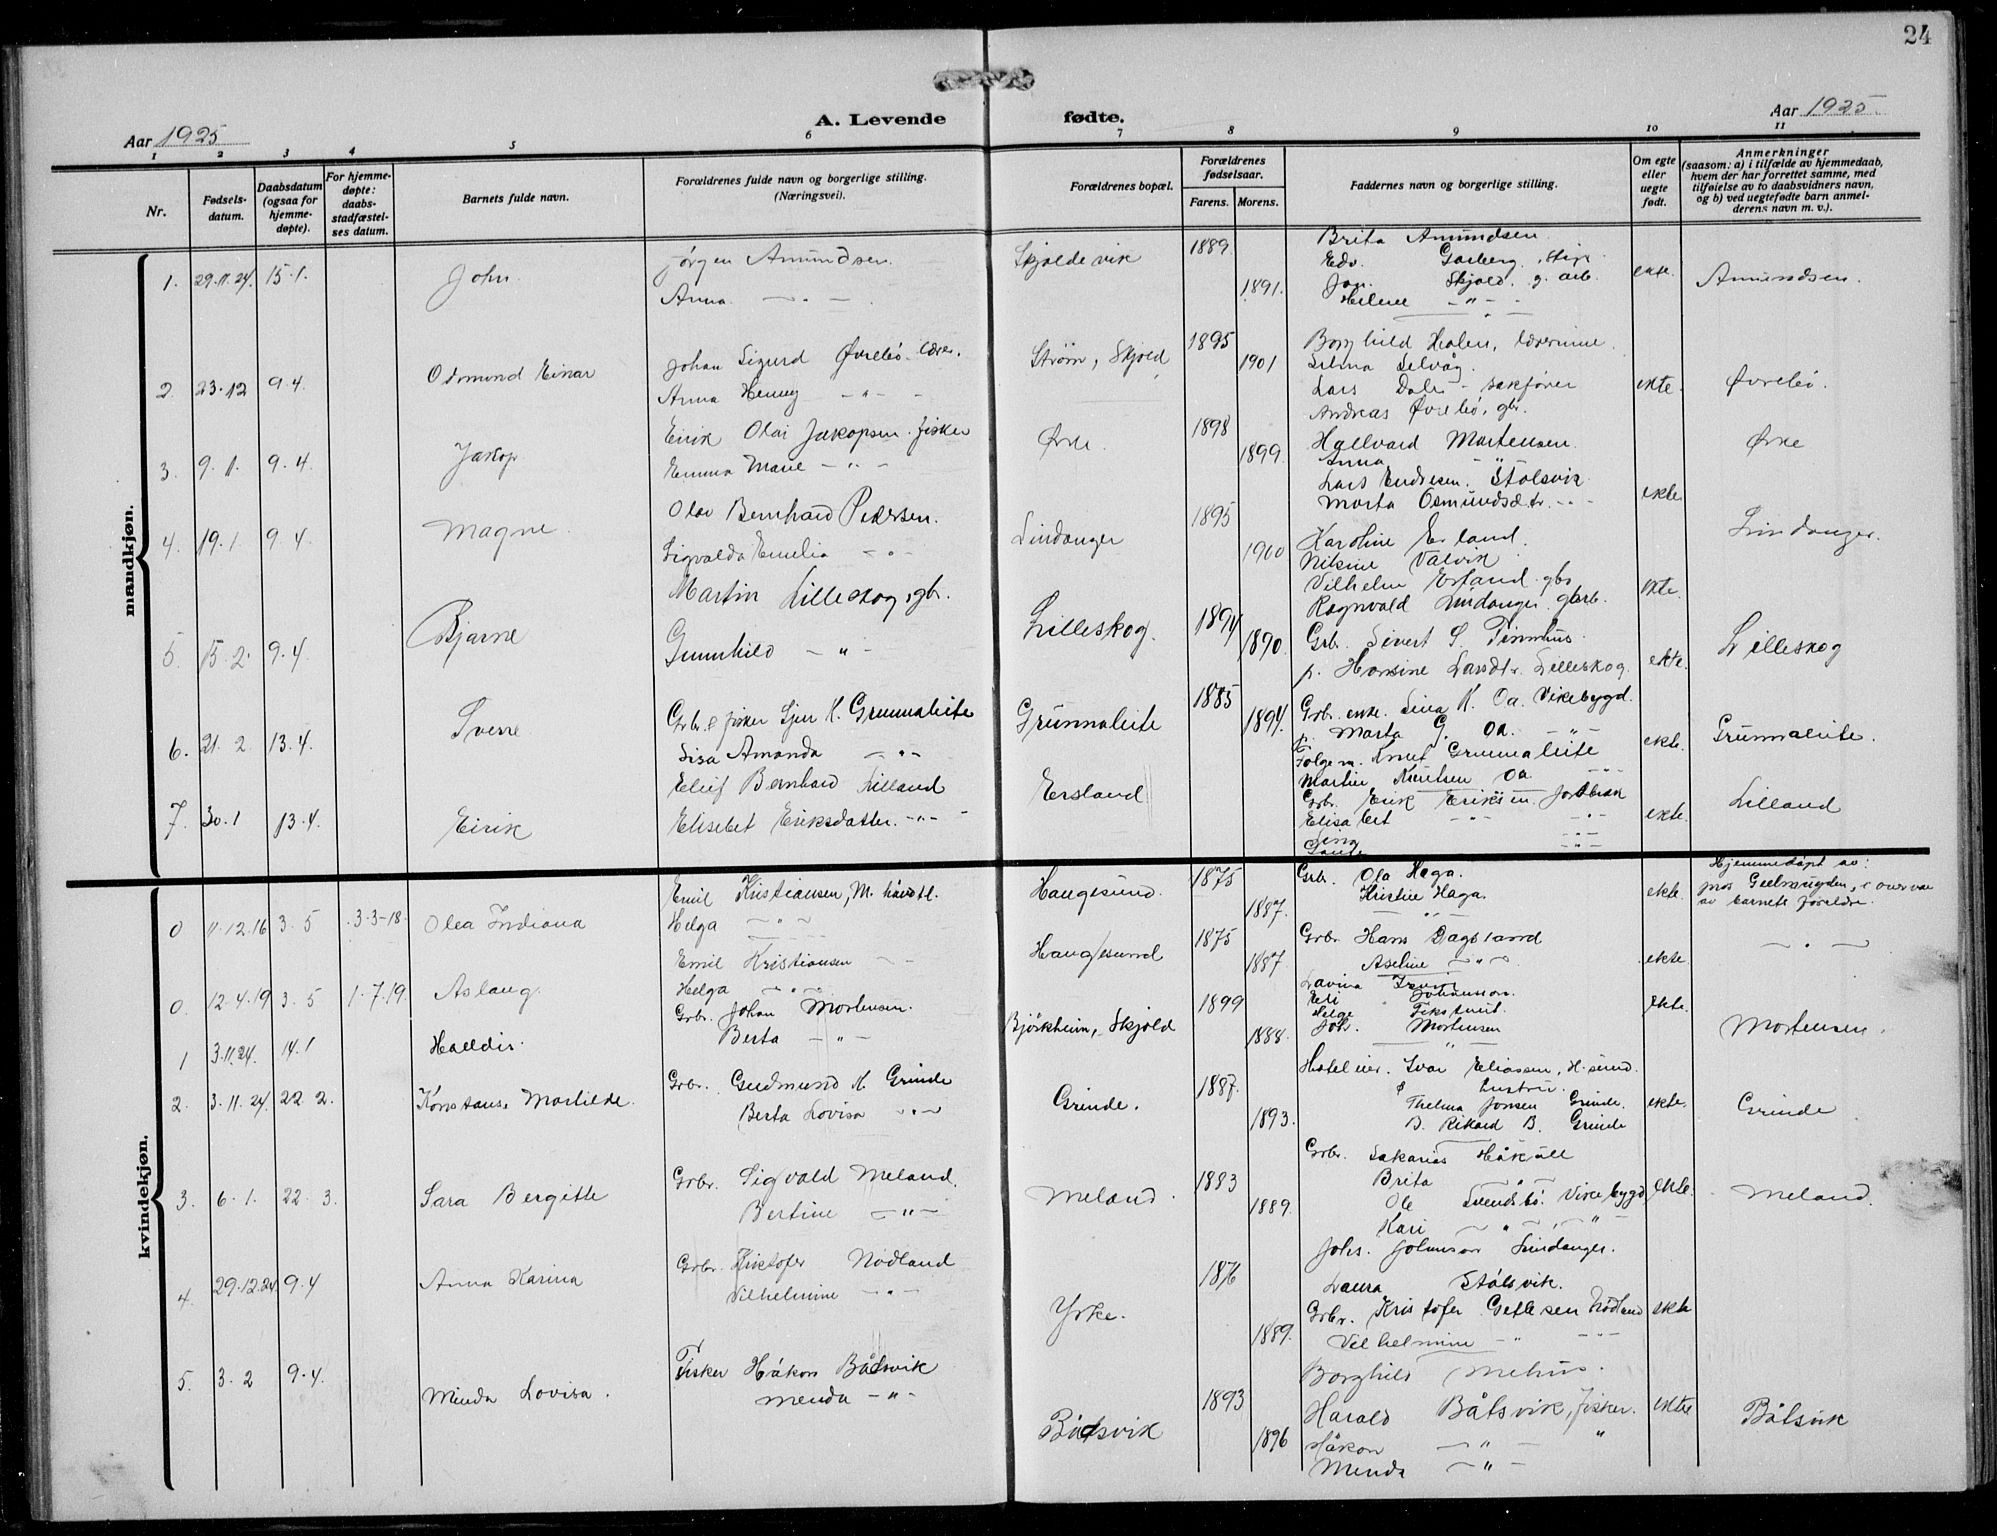 24
A. Levende fødte.
Aar 1925
Aar 1925
1 2 3 4 5 6 7 8 9 10 11
Nr.
Fødsels-
datum.
Daabsdatum
(ogsaa for
hjemme-
døpte).
For hjemme-
døpte:
daabs-
stadfæstel-
ses datum.
Barnets fulde navn.
Forældrenes fulde navn og borgerlige stilling.
(Næringsvei).
Forældrenes bopæl.
Forældrenes
fødselsaar.
Farens. Morens.
Faddernes navn og borgerlige stilling.
Om egte
eller
uegte
født.
Anmerkninger
(saasom: a) i tilfælde av hjemmedaab,
hvem der har forrettet samme, med
tilføielse av to daabsvidners navn,
og b) ved uegtefødte barn anmel-
derens navn m. v.).
mandkjøn.
1. 29.11.24. 15.1. John
Jørgen Amundsen
Anna — " —
Skjoldevik 1889 1891.
Brita Amundsen
Edv. Garberg
Jon Skjold, g. arb.
Helene — " —
ekte. Amundsen.
2. 23.12 9.4. Osmund Einar
Johan Sigurd Øvrebö lærer.
Anna Henny — " —
Strøm, Skjold 1895 1901
Borghild Halen, lærerinne.
Selma Selvåg.
Lars Dale - sakfører
Andreas Øvrebö, gbr.
ekte. Øvrebö.
3. 9.1. 9.4. Jakop
Eirik Olai Jakopsen fisker
Emma Marie — " —
Ørke. 1898 1899.
Hallvard Mortensen
Anna — " —
Lars Endresen Stolsvik
Marta Osmundsdtr. — " —
ekte Ørke
4. 19.1. 9.4. Magne
Olav Bernhard Pedersen.
Sigvalda Emelia — " —
Lindanger 1895 1900
Karoline Ersland.
Nilsine Valvik
Vilhelm Ersland gbr
Ragnvald Lindanger, garb.
ekte. Lindanger.
5. 15.2. 9.4 Bjarne
Martin Lilleskog, gbr.
Gunnhild — " —
Lilleskog. 1894 1890
Grb. Sivert S. Timmhus.
p. Hansine Larsdtr. Lilleskog.
ekte. Lilleskog
6. 21.2. 13.4. Sverre
Grb. & fisker Sjur K. Grunnaleite
Lisa Amanda — " —
Grunnaleite 1885 1894.
Grb. enke. Lina K. Oa. Vikebygd.
p. Marta G. Oa. — " —
Følgem. Knut Grunnaleite
Martin Knutsen Oa — " —
ekte. Grunnaleite.
7. 30.1 13.4. Eirik
Eluf Bernhard Lilland
Elisebet Eriksdatter — " —
Ersland
Grb. Erik Eriksen
Elisabet — " —
ekte. Lilland
kvindekjøn.
0 11.12.16 3.5 .3-3-18. Olea Indiana
Emil Kristiansen, M.
Helga — " —
Haugesund. 1875 1887.
Grb. Ola Haga.
Kristine Haga.
ekte.
Hjemmedøpt av:
av barnets foreldre.
0. 12.4.19 3.5 1.7.19. Aslaug.
Emil Kristiansen — " —
Helga — " —
Haugesund 1875 1887
Grbr. Hans Dagsland
Aseline — " —
ekte. — " —
1 3.11.24. 14.1 Halldis.
Grb. Johan Mortensen.
Berta — " —
Björkheim, Skjold 1899 1888.
Lavina
Eli Johannson.
Helge
Joh. Mortensen
ekte. Mortensen.
2. 3.11.24. 22.2. Konstanse Martilde.
Grbr. Gudmund K. Grinde
Berta Lovisa — " —
Grinde. 1887. 1893.
Hotelier. Ivar Eliassen, H.sund.
& hustru.
Thelma Jonsen Grinde.
B. Rikard B. Grinde
ekte. Grinde
3. 6.1. 22.3. Sara Bergitte
Grbr. Sigvald Meland.
Bertine — " —
Meland. 1883 1889.
Grbr. Sakarias Håkåll
Brita — " —
Ole Svendsbö. Vikebygd
Kari — " —
ekte. Meland.
4. 29.12.24. 9.4 Anna Karina
Grbr. Kristofer Nodland
Vilhelmine — " —
Yrke. 1876 1889.
Johs. Johnson Lindanger.
Laura Stölsvik.
Grbr. Kristofer Getlesen Nodland
Vilhelmine — " —
ekte
5. 3.2 9.4. Minda Lovisa.
Fisker Håkon Båtsvik
Menda — " —
Båtsvik 1893 1896
Borghild Mehus.
Harald Båtsvik, fisker.
Håkon — " —
Menda — " —
ekte Båtsvik